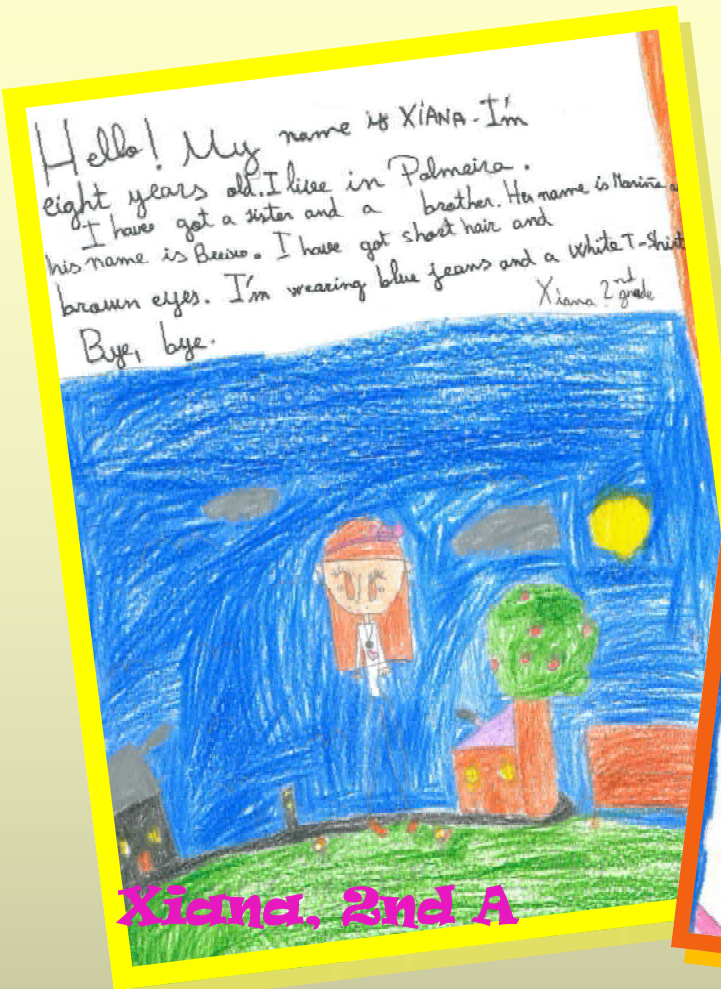 Hello! My name is XIANA. I'm
eight years old. I live in Palmeira.
I have got a sister and a brother. Her name is
his name is I have got short hair and
brown eyes. I'm wearing blue jeans and a white T-Shirt
Xiana 2nd grade
Bye, bye.
Xiana, 2nd A